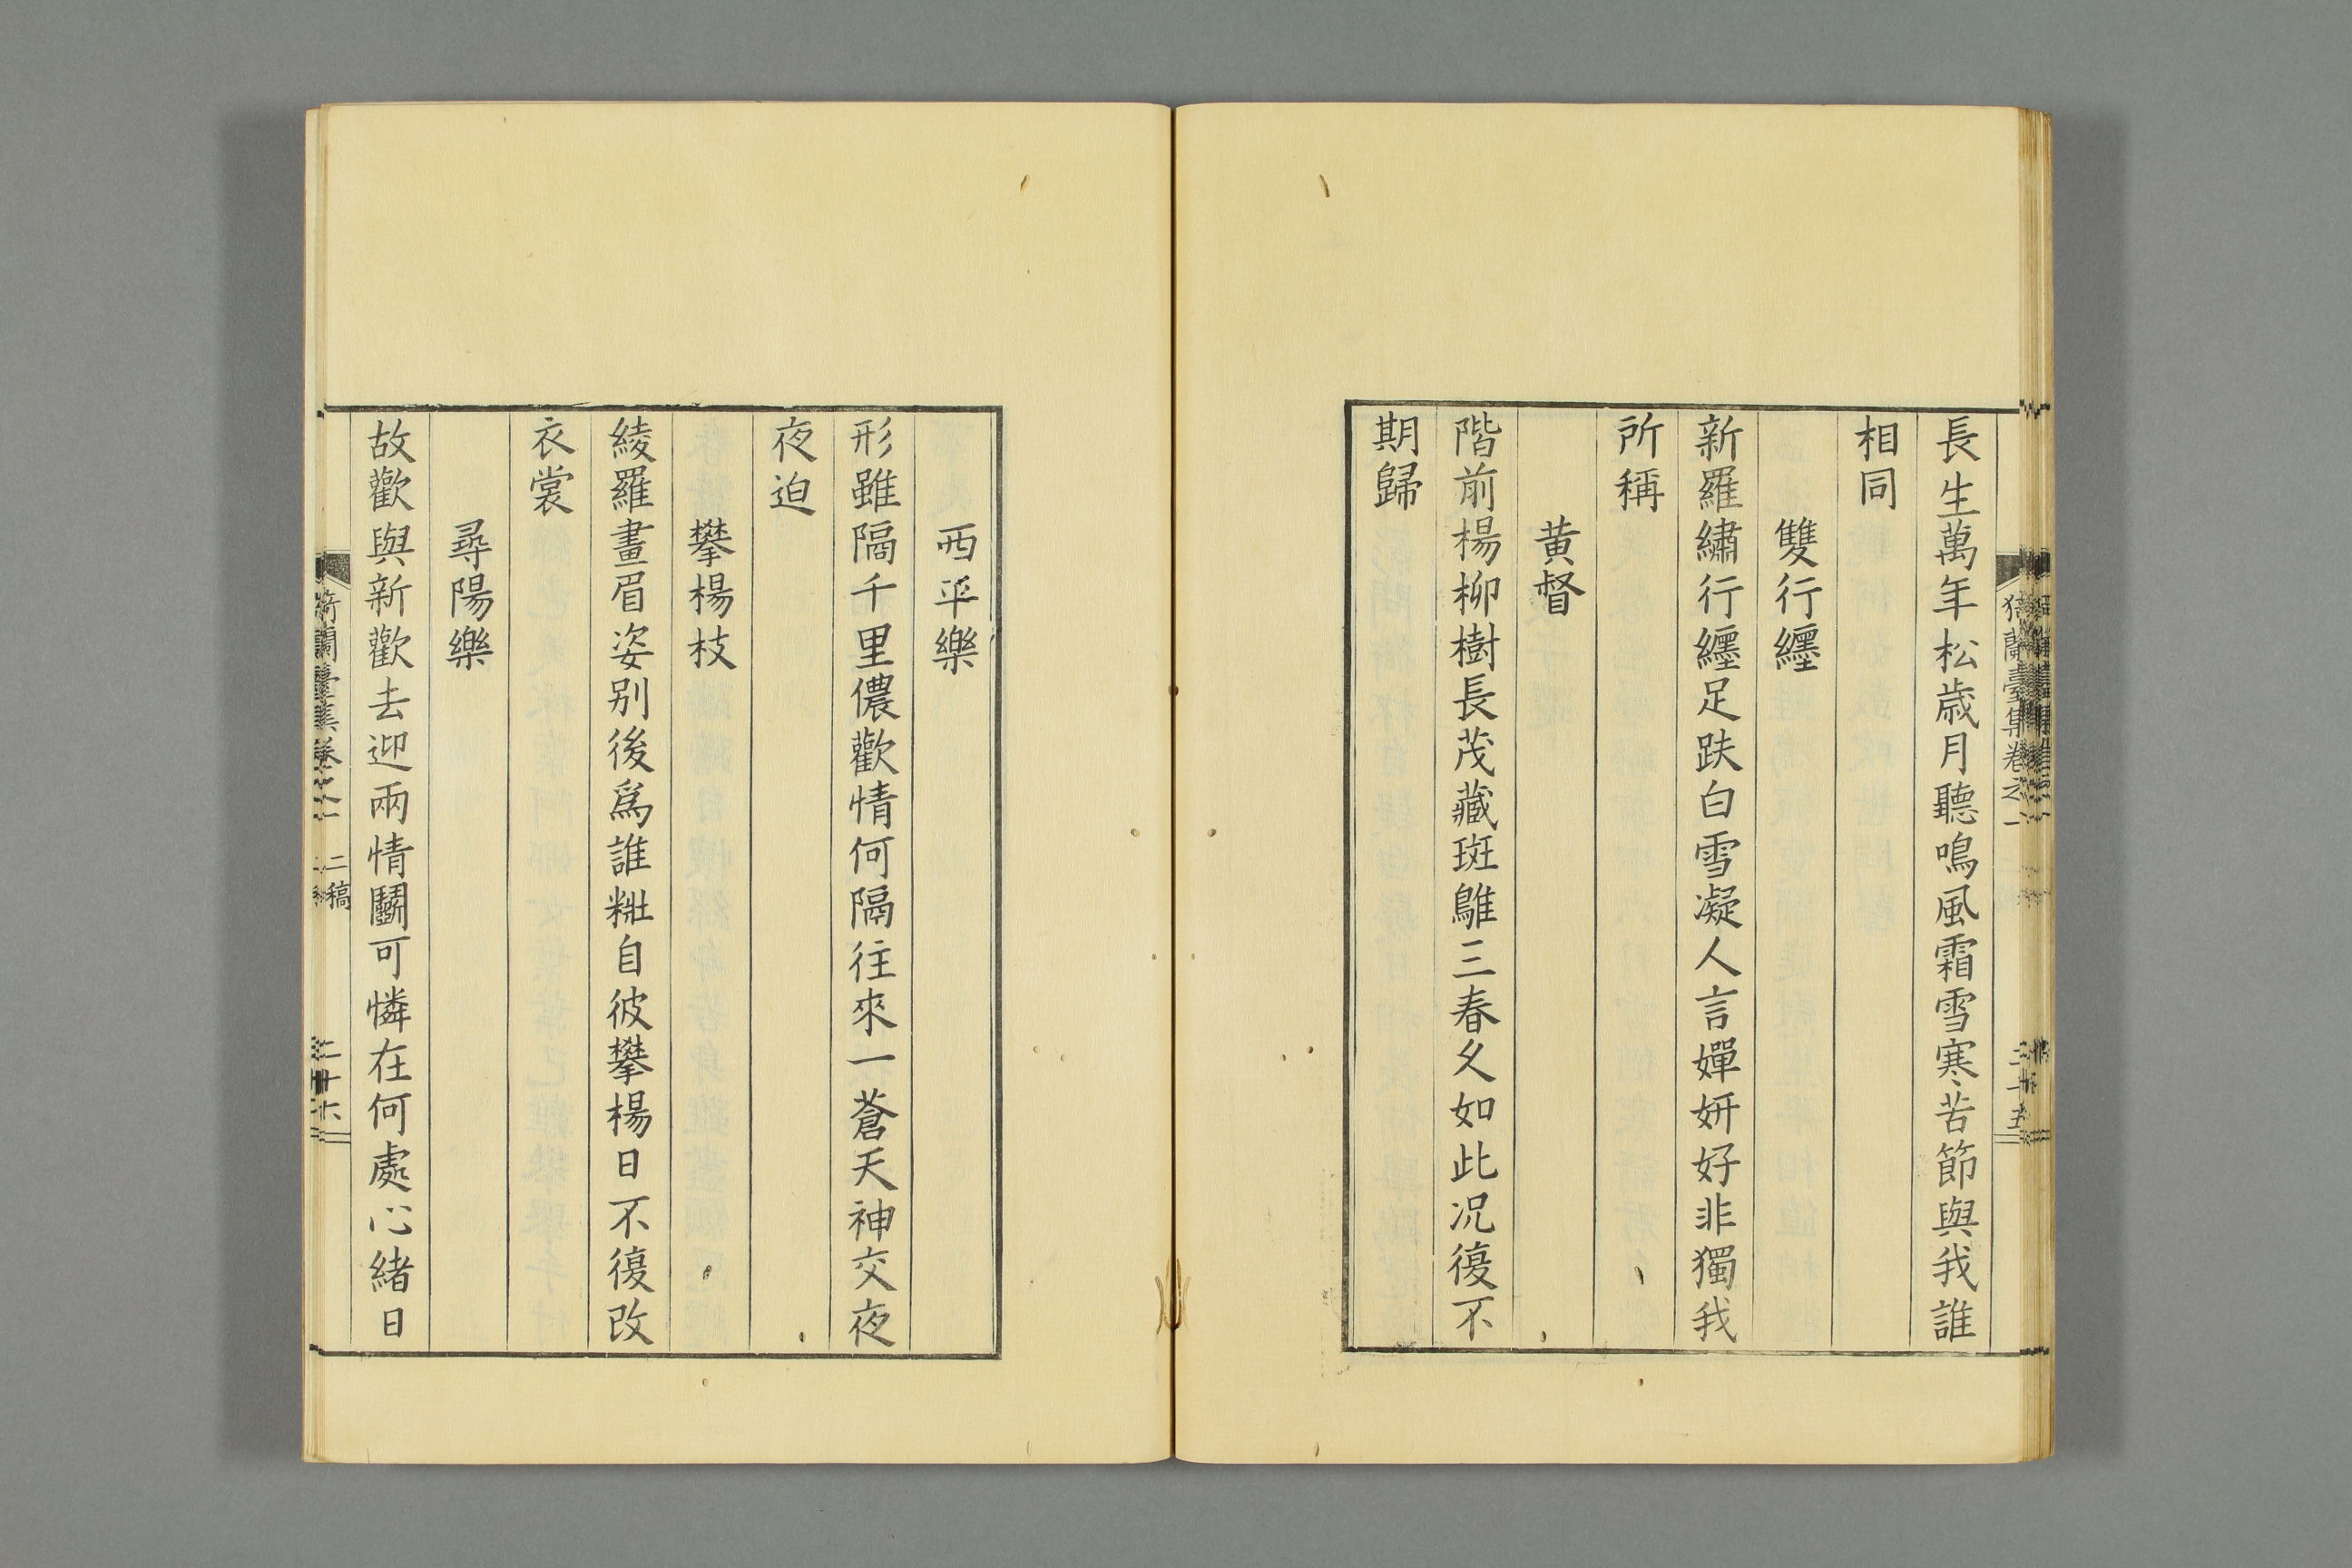 長生萬年松歳月聽鳴風霜雪寒苦節與我誰
相同
雙行纏
新羅繡行纏足趺白雪凝人言嬋妍好非獨我
所稱
黄督
階前楊柳樹長茂藏斑鵻三春久如此况復不
期歸
猗蘭臺集卷之一
西平樂
形雖隔千里儂歡情何隔往來一蒼天神交夜
夜迫
攀楊枝
綾羅畫眉姿别後爲誰粧自彼攀楊日不復改
衣裳
尋陽樂
故歡與新歡去迎兩情鬭可憐在何處心緒日
猗蘭臺集卷之一
二稿
二十六